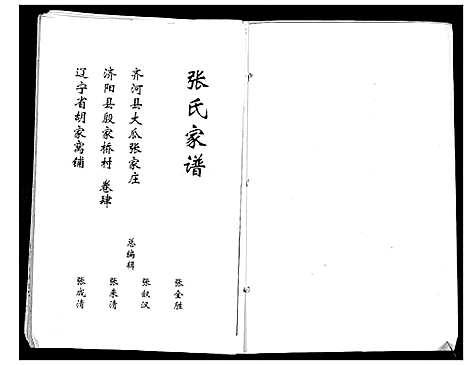 张氏家谱
齐河县大瓜张家庄
济阳县殷家桥村 卷肆
辽宁省胡家窝铺
总编辑
张金胜
张叙汉
张来清
张成清